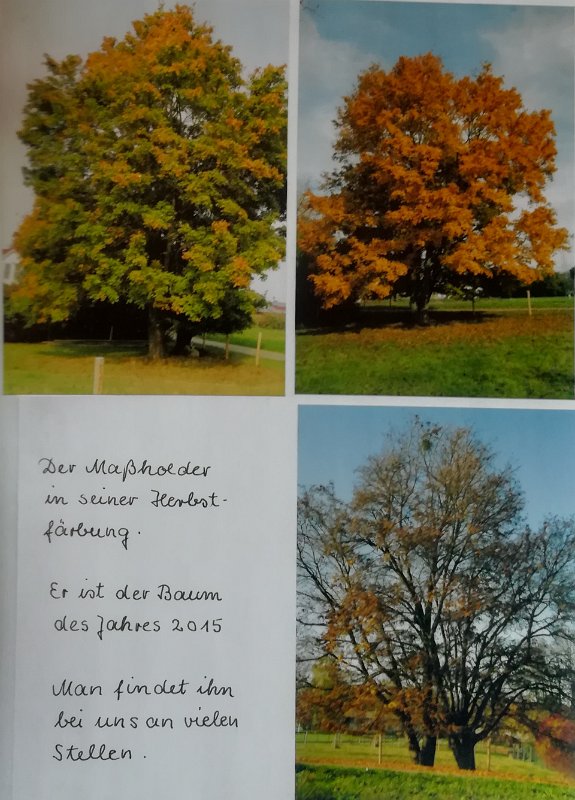 Der Maßholder
in seiner Herbst-
färbung.
Er ist der Baum
des Jahres 2015
Man findet ihn
bei uns an vielen
Stellen.